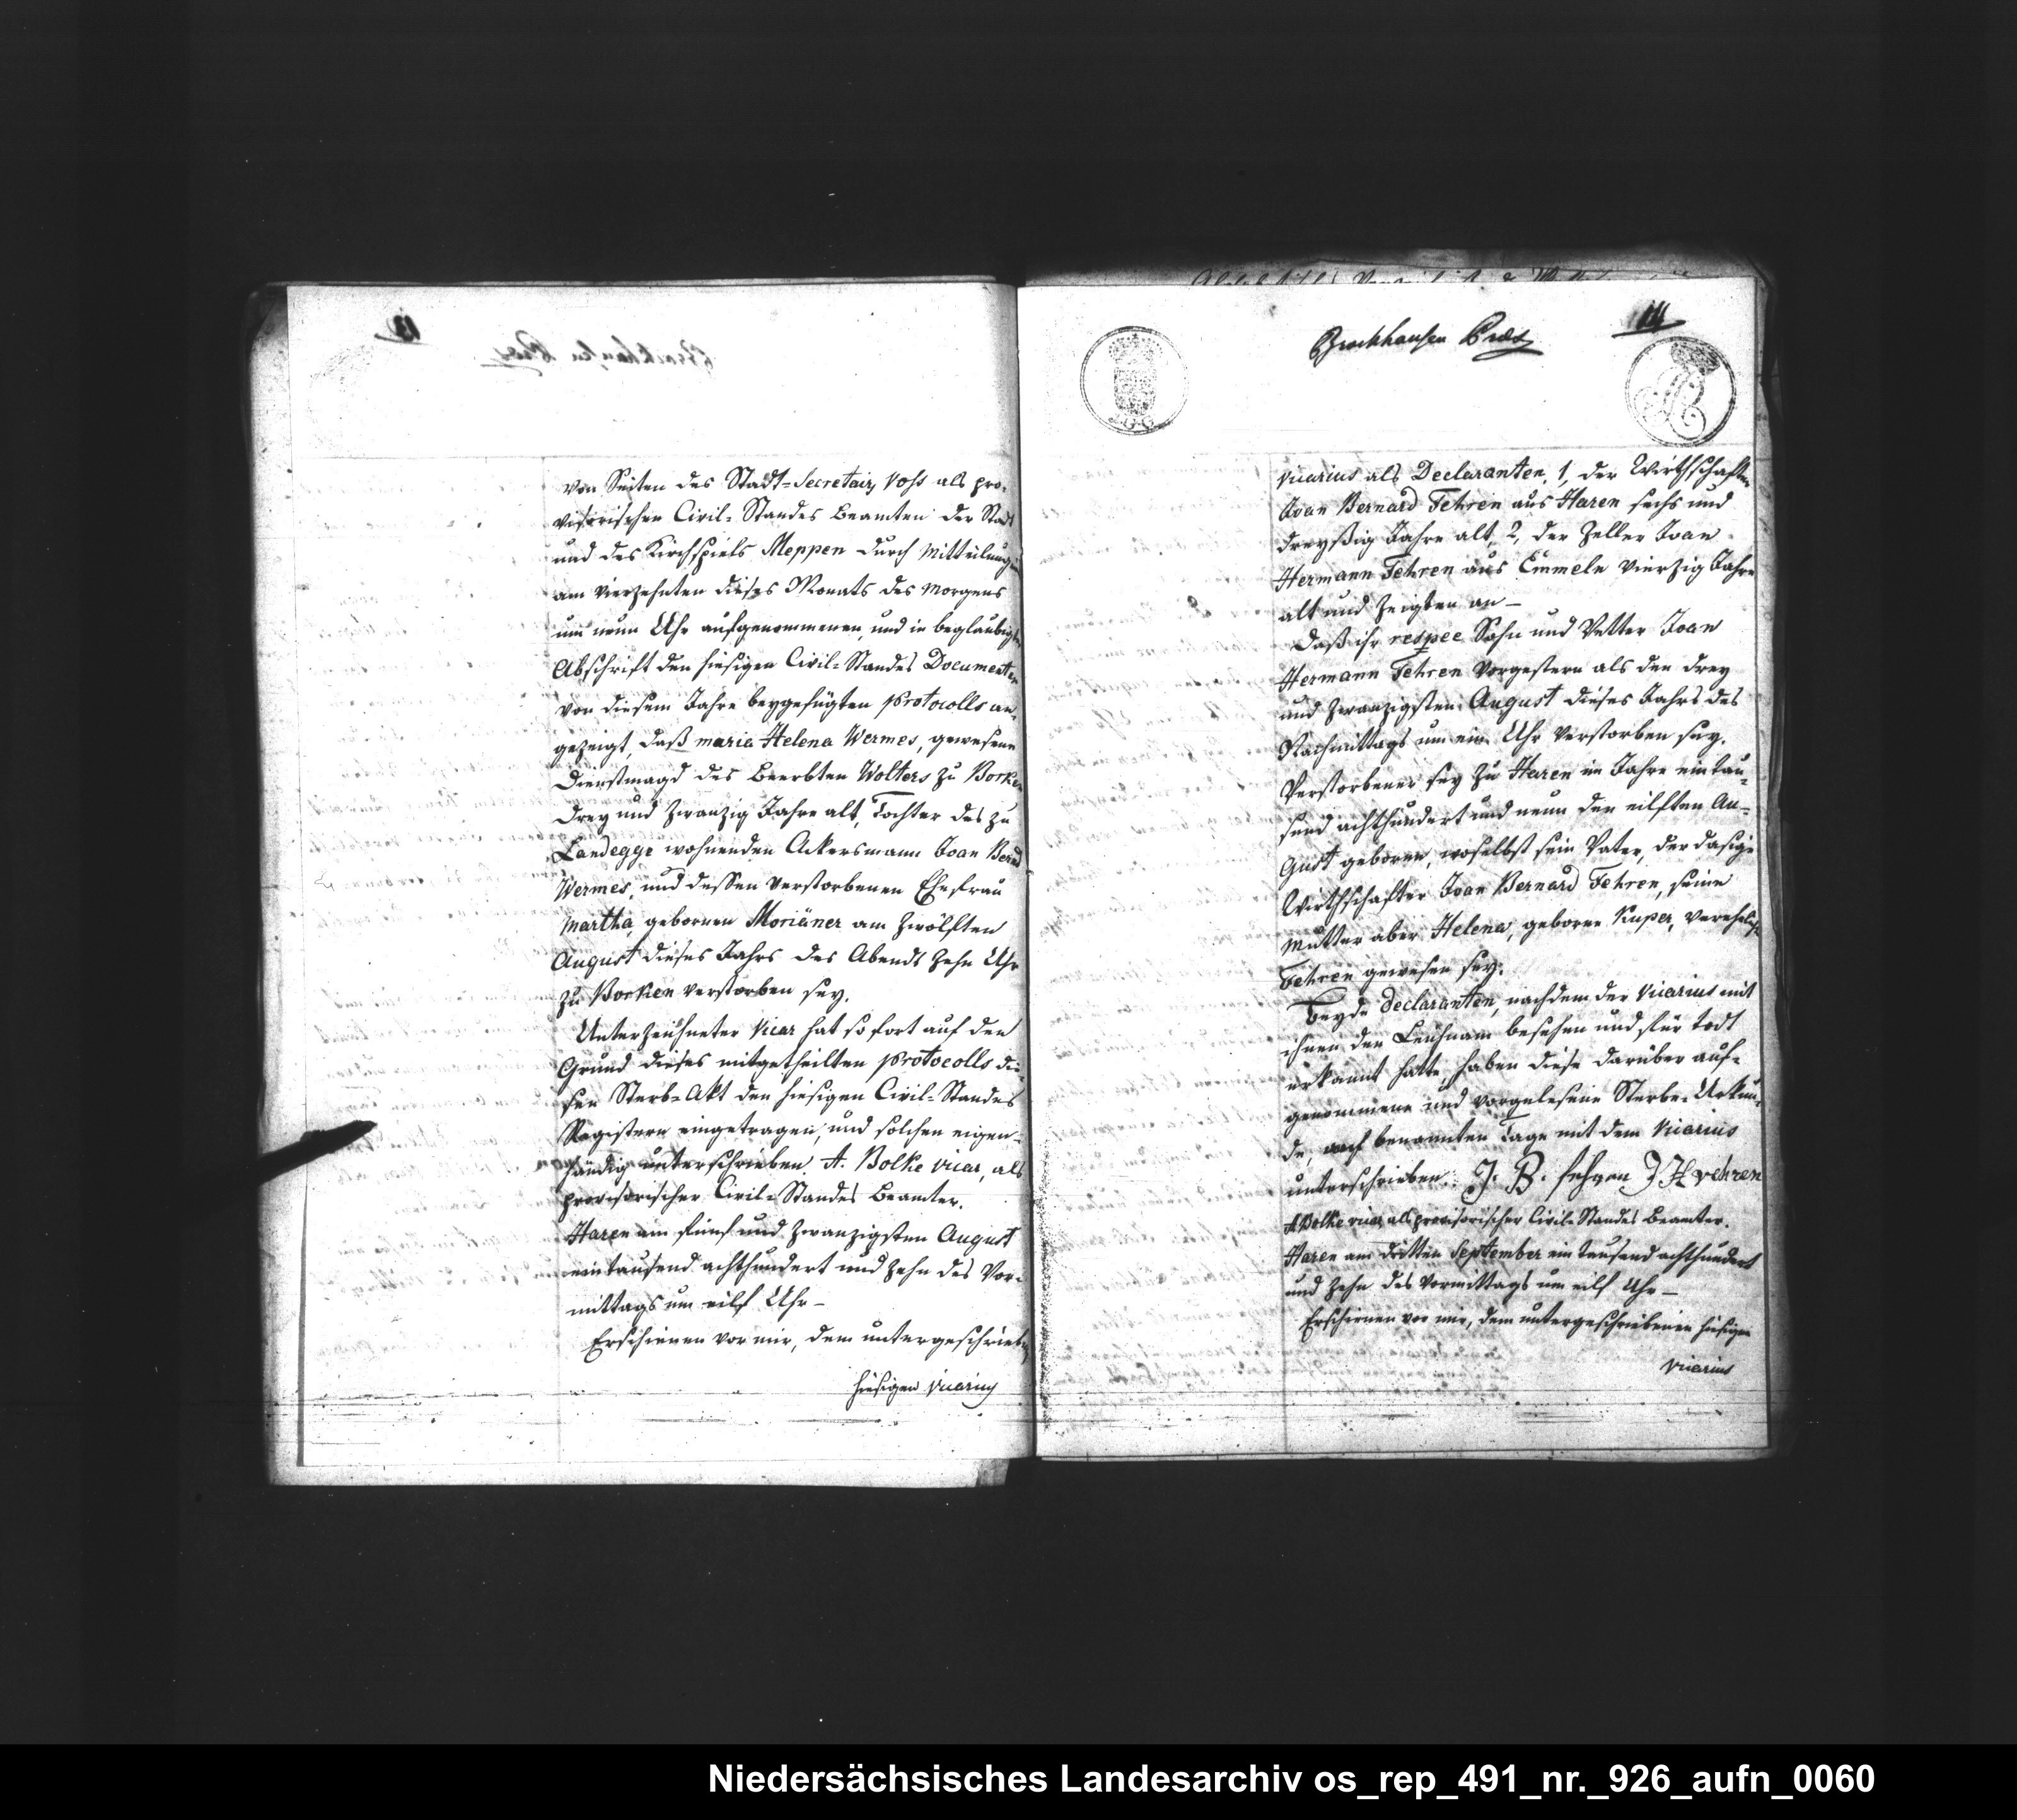 von Seiten des Stadt-Secretairs Voss als pro-
visorischen Civil-Standes Beamten der Stadt
und des Kirchspiels Meppen durch Mitteilung
am vierzehnten dieses Monats des Morgens
um neun Uhr aufgenommenen, und in beglaubigter
Abschrift den hiesigen Civil-Standes Documenten
von diesem Jahre beygefügten Protocolls an-
gezeigt, daß maria Helena Wermes, gewesene
Dienstmagd des Beerbten Wolters zu Borken
drey und zwanzig Jahre alt, Tochter des zu
Landegge wohnenden Ackersmann Joan Bernd
Wermes, und dessen verstorbenen Ehefrau
Martha, gebornen Moriäner am zwölften
August dieses Jahrs des Abends zehn Uhr
zu Borken verstorben sey.
Unterzeichneter Vicar hat so fort auf den
Grund dieses mitgetheilten Protocolls die-
sen Sterb-Akt den hiesigen Civil-Standes
Registern eingetragen, und solchen eigen-
händig unterschrieben. A. Bolke vicar, als
provisorischer Civil-Standes Beamter.
Haren am fünf und zwanzigsten August
eintausend achthundert und zehn des Vor-
mittags um eilf Uhr –
Erschienen vor mir, dem untergeschrieben
hiesigen Vicarius
Brockhausen Præs
14
Vicarius als Declaranten, 1, der Wirthschafter
Joan Bernard Fehren aus Haren sechs und
dreyßig Jahre alt, 2, der Zeller Joan
Hermann Fehren aus Emmeln vierzig Jahre
alt und zeigten an –
Daß ihr respec Sohn und Vetter Joan
Hermann Fehren vorgestern als den drey
und zwanzigsten August dieses Jahrs des
Nachmittags um ein Uhr verstorben sey.
Verstorbener sey zu Haren im Jahre eintau-
send achthundert und neun den eilften Au-
gust geboren, woselbst sein Vater, der dasige
Wirthschafter Joan Bernard Fehren, seine
Mutter aber Helena, geborne Kuper, verehelichte
Fehren gewesen sey.
Beyde Declaranten, nachdem der Vicarius mit
ihnen den Leichnam besehen und für todt
erkannt hatte, haben diese darüber auf-
genommene und vorgelesene Sterbe-Urkun-
de, nach benannten Tage mit dem Vicarius
unterschrieben: J. B. fehren J H vehren
A Bolke vicar als provisorischer Civil-Standes Beamter.
Haren am dritten September ein tausend achthundert
und zehn des Vormittags um eilf Uhr –
Erschienen vor mir, dem untergeschriebenen hiesigen
Vicarius
Niedersächsisches Landesarchiv os_rep_491_nr._926_aufn_0060